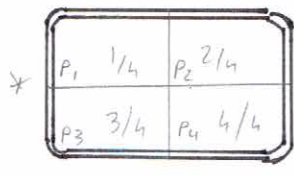 P₁ 1/4 P₂ 2/4
* P3 3/4 P4 4/4